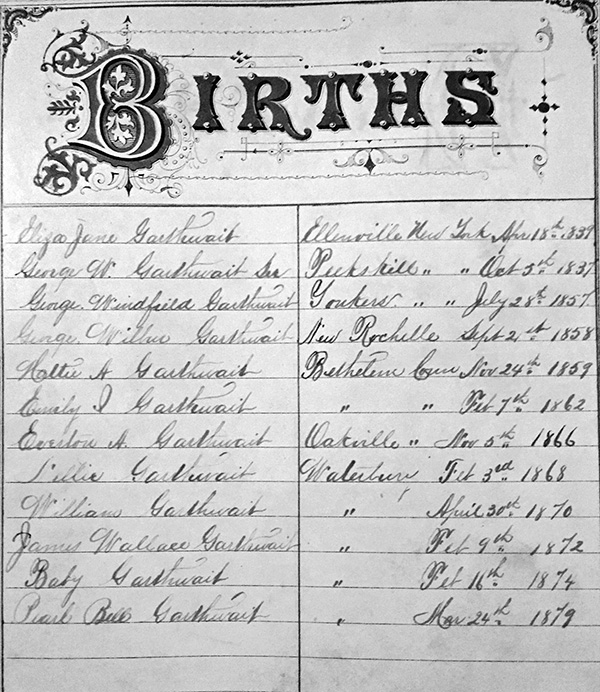 BIRTHS
Eliza Jane Garthwait Ellenville New York Apr 18th 1839
George W. Garthwait Snr Peekskill " " Oct 5th 1837
George Windfield Garthwait Yonkers " " July 28th 1857
George Wilbur Garthwait New Rochelle Sept 21st 1858
Hattie A Garthwait Bethelem Conn Nov 24th 1859
Emily J Garthwait " " Feb 7th 1862
Everton A. Garthwait Oakville " Nov 5th 1866
Nellie Garthwait Waterbury Feb 3rd 1868
William Garthwait " April 30th 1870
James Wallace Garthwait " Feb 9th 1872
Baby Garthwait " Feb 16th 1874
Pearl Bell Garthwait " Mar 24th 1879